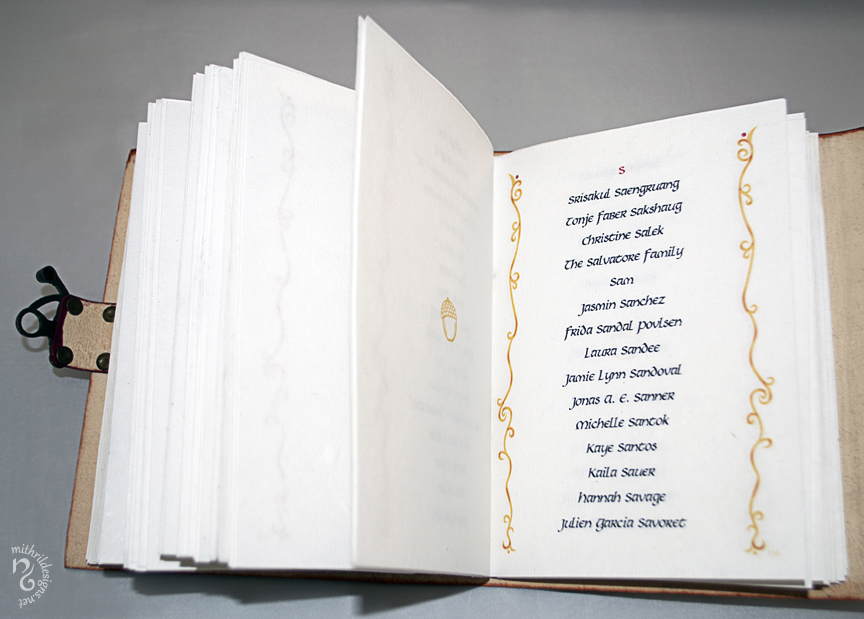 S
Srisakul Saengruang
Tonje Faber Sakshaug
Christine Salek
The Salvatore Family
Sam
Jasmin Sanchez
Frida Sandal Povlsen
Laura Sandee
Jamie Lynn Sandoval
Jonas A. E. Sanner
Michelle Santok
Kaye Santos
Kaila Sauer
Hannah Savage
Julien Garcia Savoret
mithrildesigns.net